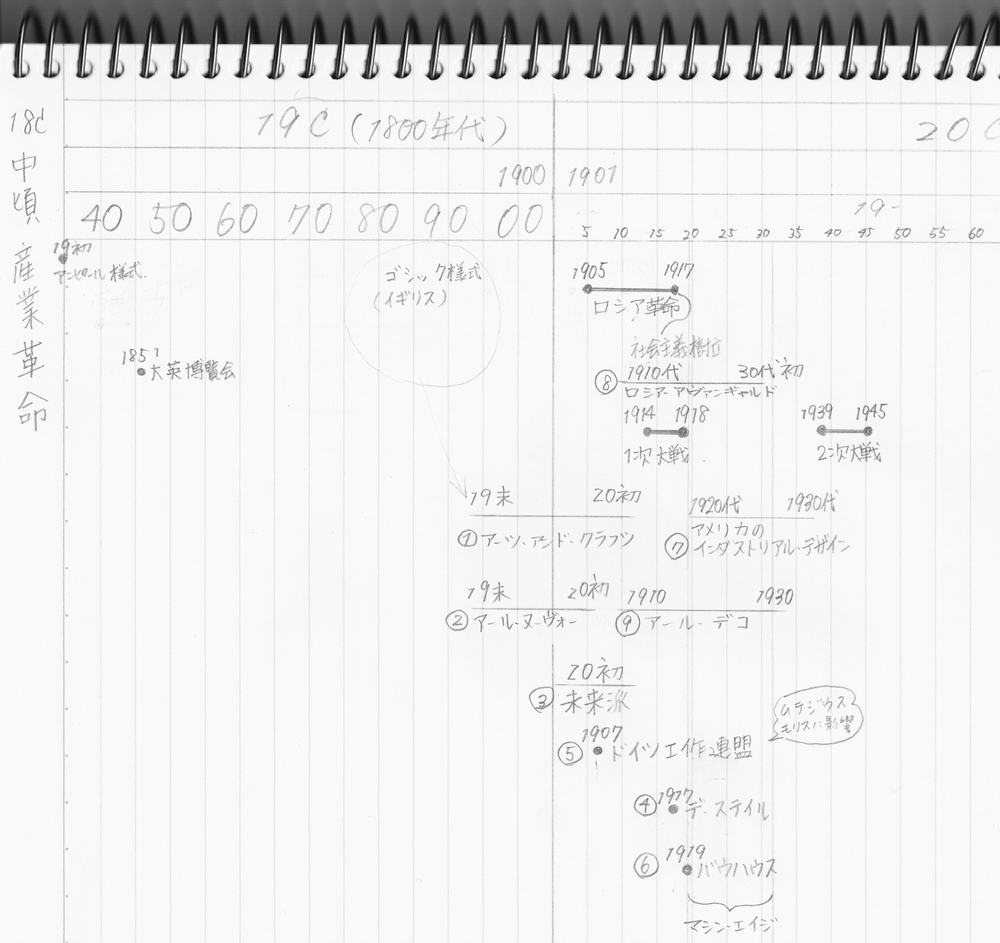 18C中頃産業革命
19C（1800年代）
20C
1900
1901
40 50 60 70 80 90 00
19-
5 10 15 20 25 30 35 40 45 50 55 60
19初
アンピール様式
1851
大英博覧会
ゴシック様式
（イギリス）
1905 1917
ロシア革命
社会主義
⑧ 1910代 30代初
ロシア・アヴァンギャルド
1914 1918
1次大戦
1939 1945
2次大戦
19末 20初
①アーツ・アンド・クラフツ
1920代 1930代
⑦アメリカの
インダストリアル・デザイン
19末 20初
②アール・ヌーヴォー
1910 1930
⑨アール・デコ
20初
③未来派
ムテジウス
モリスに影響
1907
⑤ドイツ工作連盟
1917
④デ・ステイル
1919
⑥バウハウス
マシン・エイジ